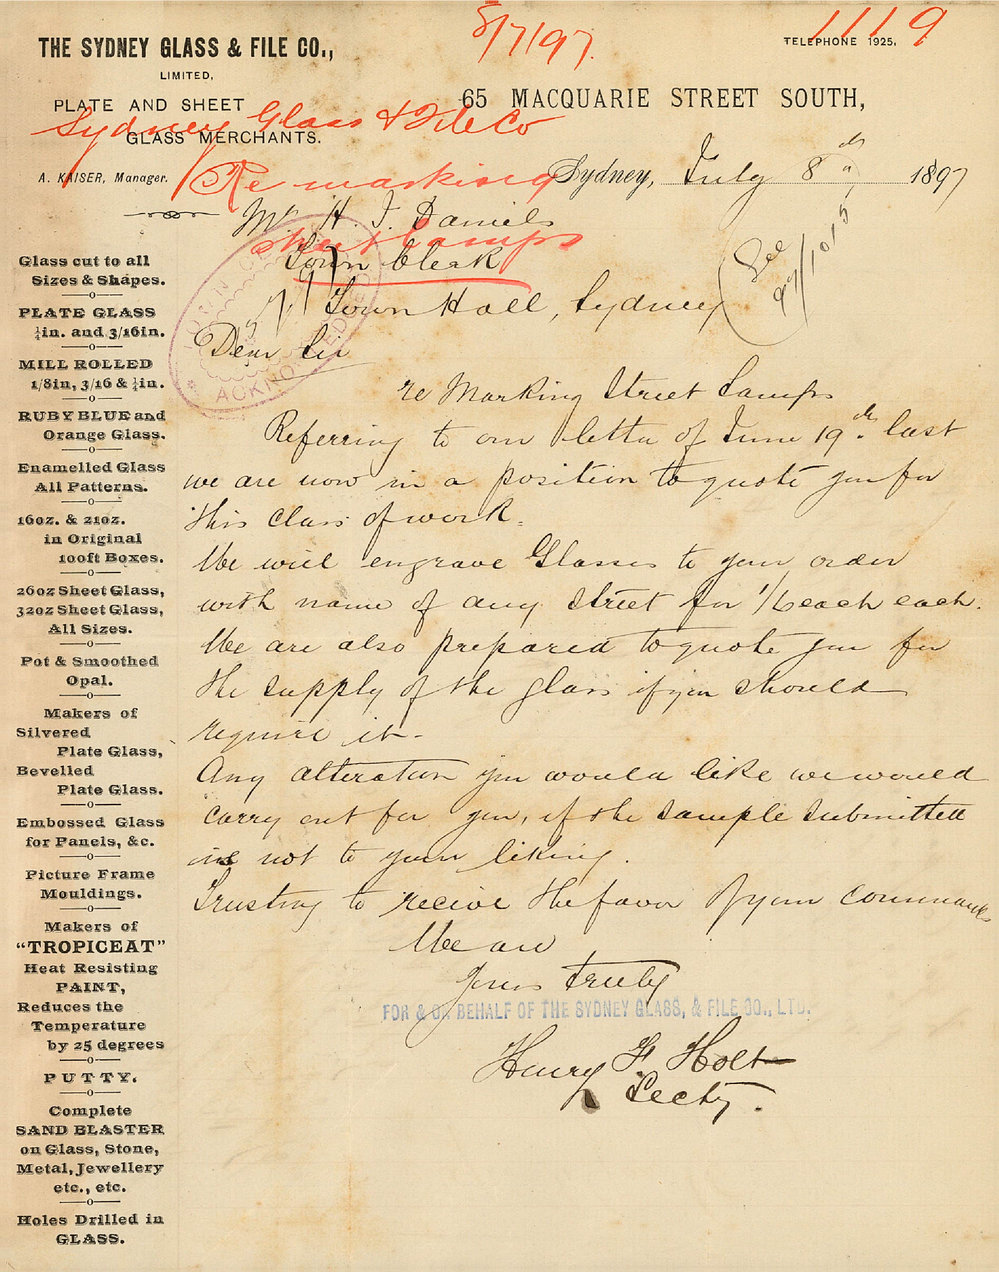 8/7/97.
1119
THE SYDNEY GLASS & FILE CO.,
LIMITED,
TELEPHONE 1925.
PLATE AND SHEET
GLASS MERCHANTS.
65 MACQUARIE STREET SOUTH,
Sydney Glass & File Co
A. KAISER, Manager.
Re marking
street lamps
Sydney, July 8th 1897
See
97/1015
Mr H. J. Daniels
Town Clerk
Town Hall, Sydney
TOWN CLERK
ACKNOWLEDGED
Dear Sir
re Marking Street Lamps
Referring to our letter of June 19th last
we are now in a position to quote you for
this class of work.
We will engrave Glasses to your order
with name of any street for 1/6 each each.
We are also prepared to quote you for
the supply of the glass if you should
require it.
Any alteration you would like we would
carry out for you, if the sample submitted
is not to your liking.
Trusting to recieve the favor of your commands
We are
Yours truly
FOR & ON BEHALF OF THE SYDNEY GLASS, & FILE CO., LTD.
Henry F Holt
Secty.
Glass cut to all
Sizes & Shapes.
PLATE GLASS
¼in. and 3/16in.
MILL ROLLED
1/8in, 3/16 & ¼in.
RUBY BLUE and
Orange Glass.
Enamelled Glass
All Patterns.
16oz. & 21oz.
in Original
100ft Boxes.
26oz Sheet Glass,
32oz Sheet Glass,
All Sizes.
Pot & Smoothed
Opal.
Makers of
Silvered
Plate Glass,
Bevelled
Plate Glass.
Embossed Glass
for Panels, &c.
Picture Frame
Mouldings.
Makers of
"TROPICEAT"
Heat Resisting
PAINT,
Reduces the
Temperature
by 25 degrees
PUTTY.
Complete
SAND BLASTER
on Glass, Stone,
Metal, Jewellery
etc., etc.
Holes Drilled in
GLASS.